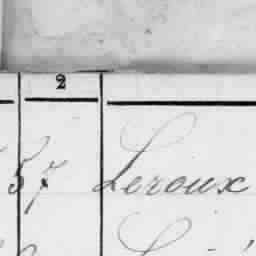 2
57 Leroux